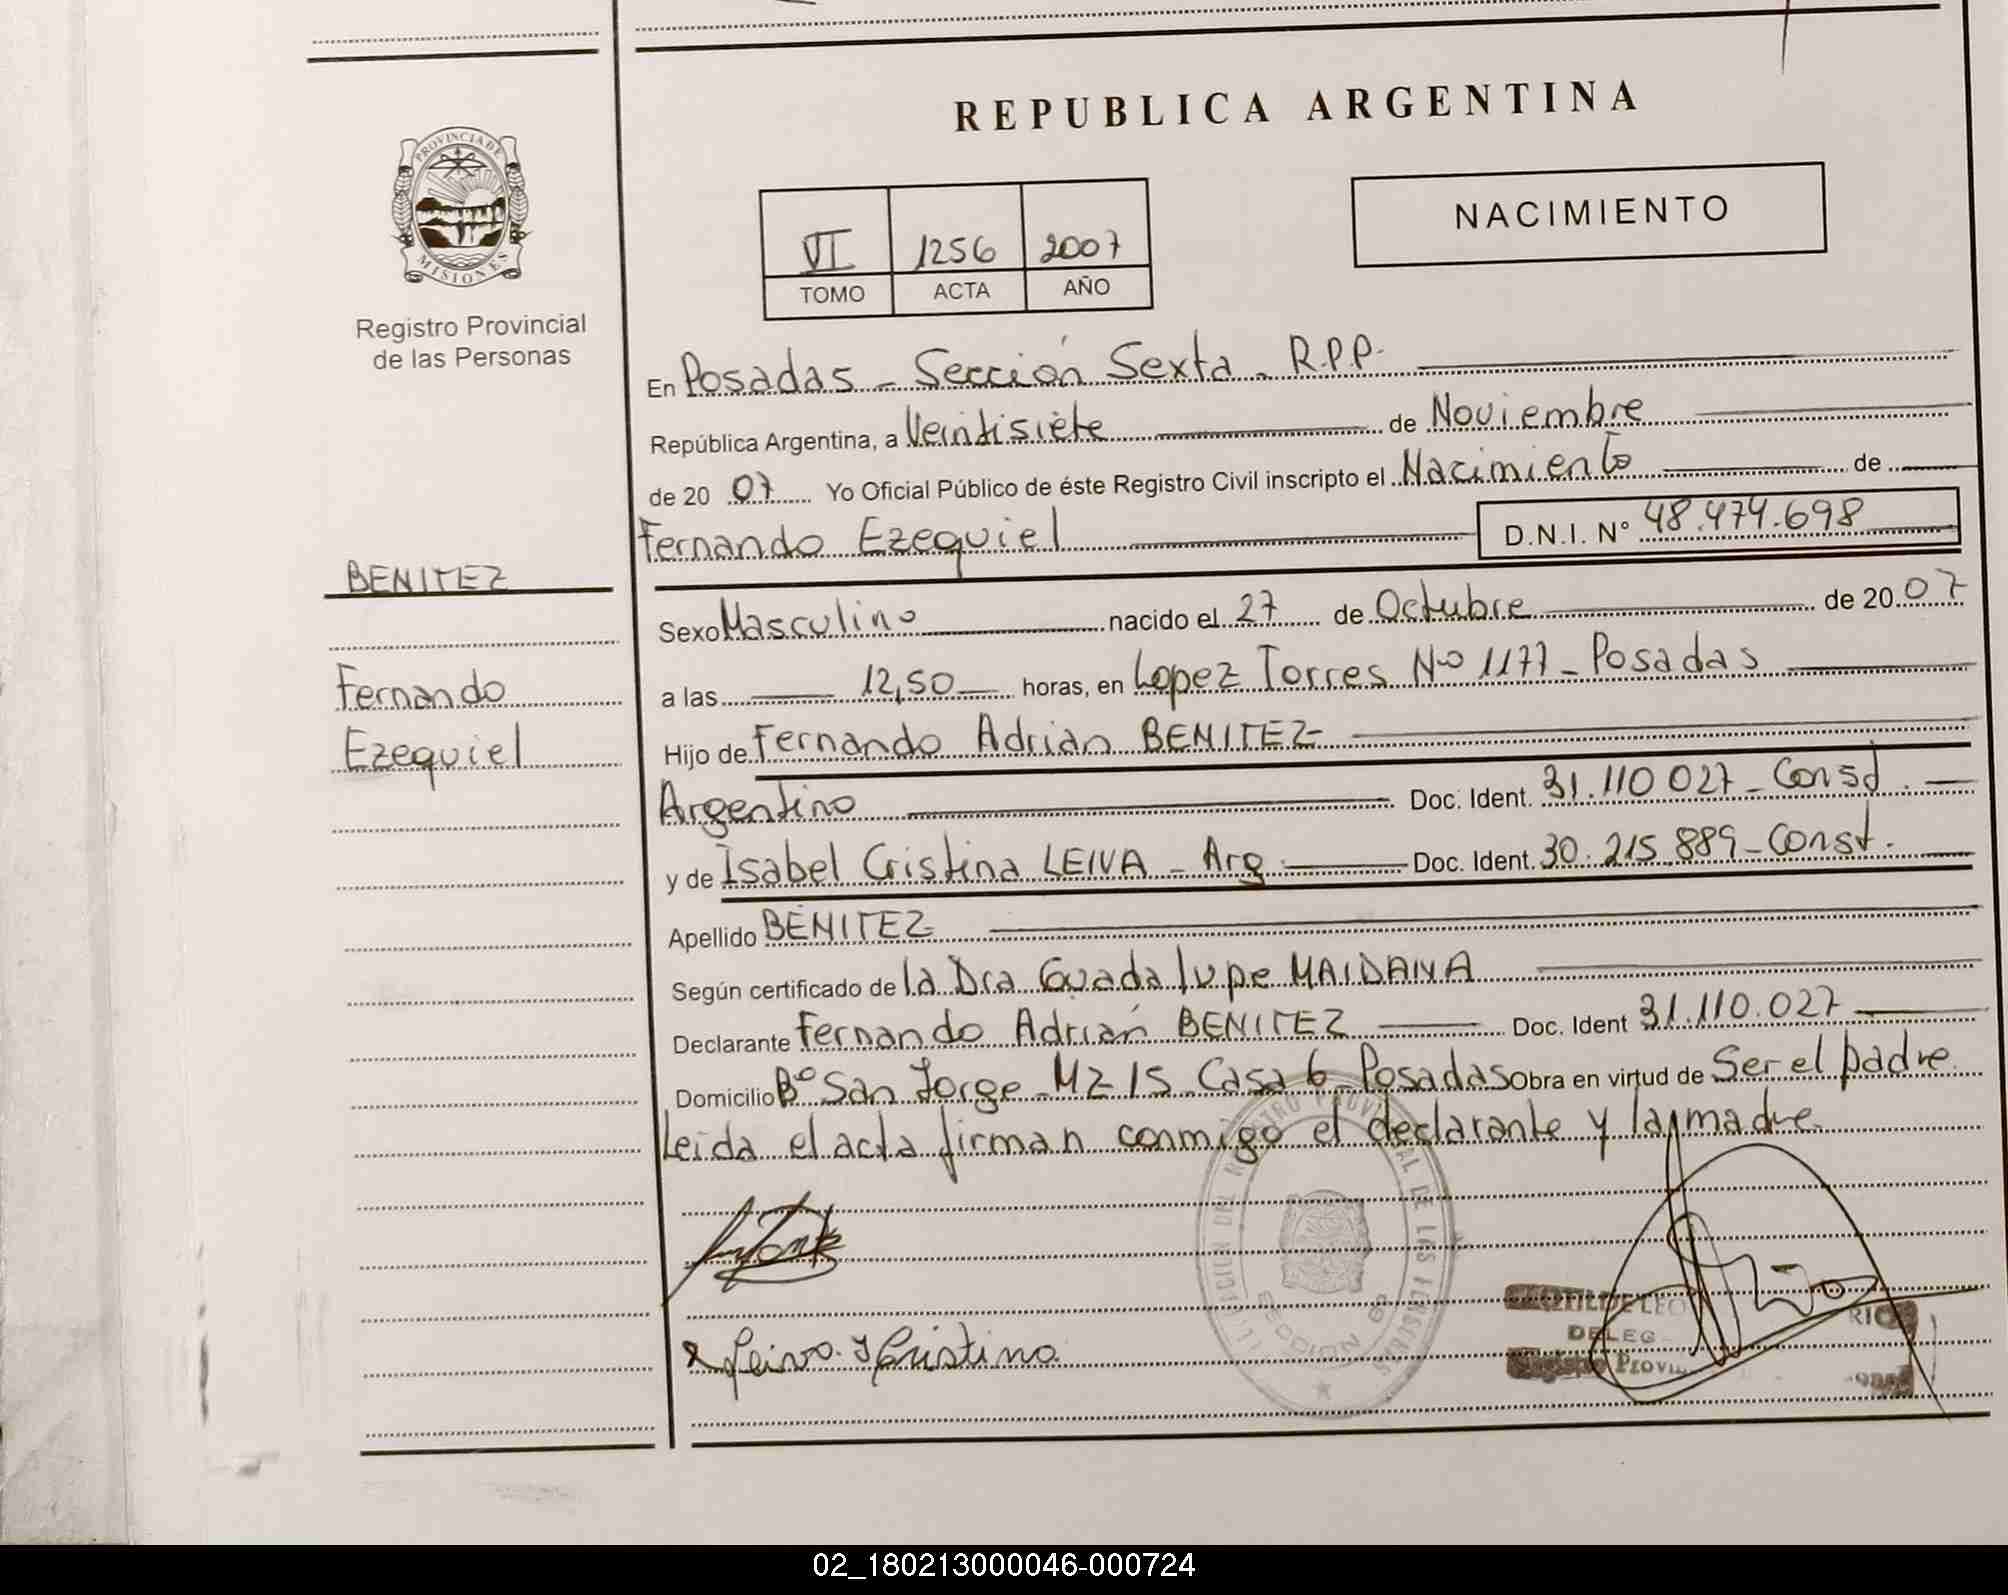 REPUBLICA ARGENTINA
PROVINCIA DE
MISIONES
Registro Provincial
de las Personas
NACIMIENTO
VI 1256 2007
TOMO ACTA AÑO
BENITEZ
Fernando
Ezequiel
En Posadas - Sección Sexta - R.P.P.
República Argentina, a Veintisiete de Noviembre
de 20 07 Yo Oficial Público de éste Registro Civil inscripto el Nacimiento de
Fernando Ezequiel D.N.I. N° 48.474.698
Sexo Masculino nacido el 27 de Octubre de 20 07
a las 12,50 horas, en Lopez Torres Nº 1177 - Posadas
Hijo de Fernando Adrian BENITEZ
Argentino Doc. Ident. 31.110 027 - Const.
y de Isabel Cristina LEIVA - Arg. Doc. Ident. 30.215.889 - Const.
Apellido BENITEZ
Según certificado de la Dra Guadalupe MAIDANA
Declarante Fernando Adrián BENITEZ Doc. Ident 31.110.027
Domicilio Bº San Jorge - MZ 15 - Casa 6 - Posadas Obra en virtud de Ser el padre
Leida el acta firman conmigo el declarante y la madre.
Leiva I Cristina
DELEG
Registro Provin
SECCION 6º
02_180213000046-000724